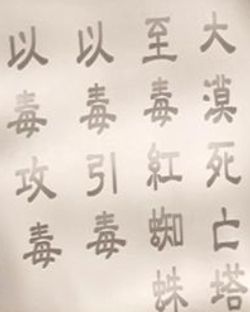 大漠死亡塔
至毒紅蜘蛛
以毒引毒
以毒攻毒